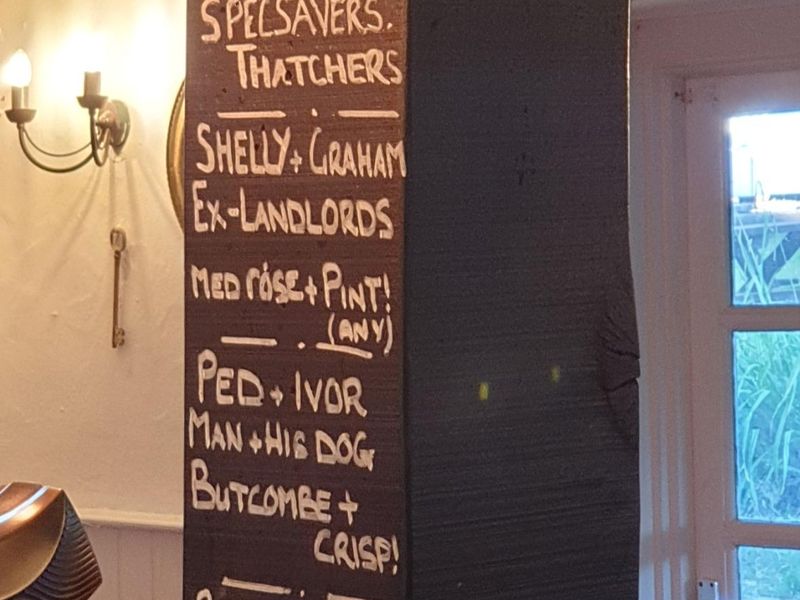 SPECSAVERS.
THATCHERS
SHELLY + GRAHAM
EX-LANDLORDS
MED RÓSE + PINT!
(ANY)
PED + IVOR
MAN + HIS DOG
BUTCOMBE +
CRISP!